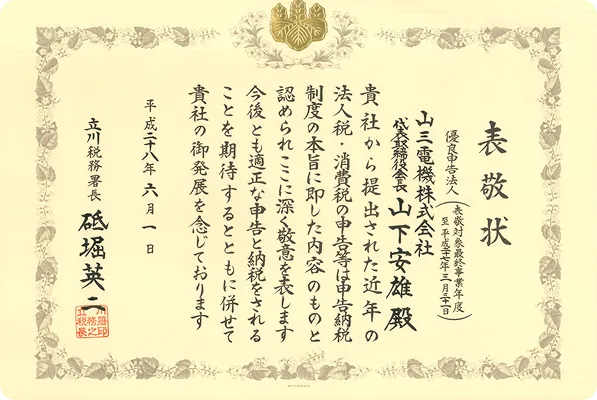 表敬状
優良申告法人
(表敬対象最終事業年度
至 平成二十七年三月三十一日)
山三電機株式会社
代表取締役会長 山下安雄殿
貴社から提出された近年の
法人税・消費税の申告等は申告納税
制度の本旨に即した内容のものと
認められここに深く敬意を表します
今後とも適正な申告と納税をされる
ことを期待するとともに併せて
貴社の御発展を念じております
平成二十八年六月一日
立川税務署長 砥堀英二